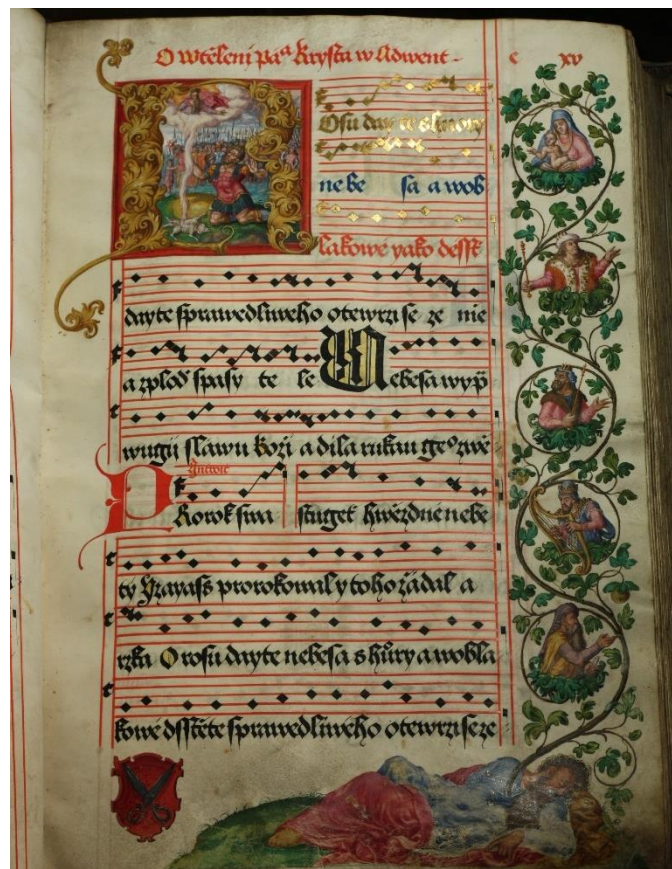 O wtěleni pa͞a Krysta w Adwent c xv
Rosu dayte s hury
nebe sa a wob
lakowé yako dessť
dayte sprawedliweho otewrzi se ze mie
a zplod spasy te le Nebesa wyp̄
wugij sławu boži a dila rukau geº zwě
Prorok swa stuget hwězdné nebe
ty Yzayass prorokowal y toho žádal a
rzka O rosu dayte nebesa s hůry a wobla
kowé dsstěte sprawedliwého otewrzi se ze